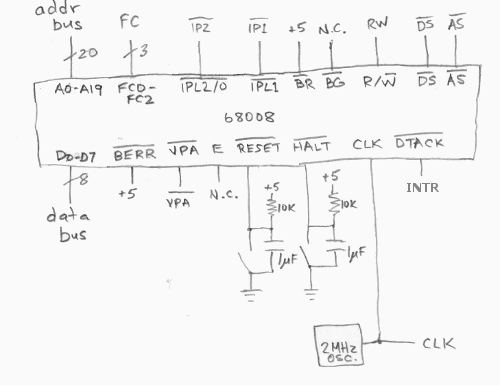 addr bus
20
FC
3
IP2
IP1
+5
N.C.
RW
DS
AS
A0-A19
FC0-FC2
IPL2/0
IPL1
BR
BG
R/W
DS
AS
68008
D0-D7
BERR
VPA
E
RESET
HALT
CLK
DTACK
8
data bus
+5
VPA
N.C.
+5
10K
1μF
+5
10K
1μF
INTR
2MHz
OSC.
CLK